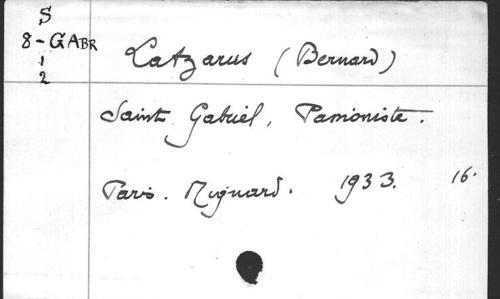 S
8-GABR
1
2
Latzarus (Bernard)
Saint Gabriel, Passioniste.
Paris. Mignard. 1933. 16.